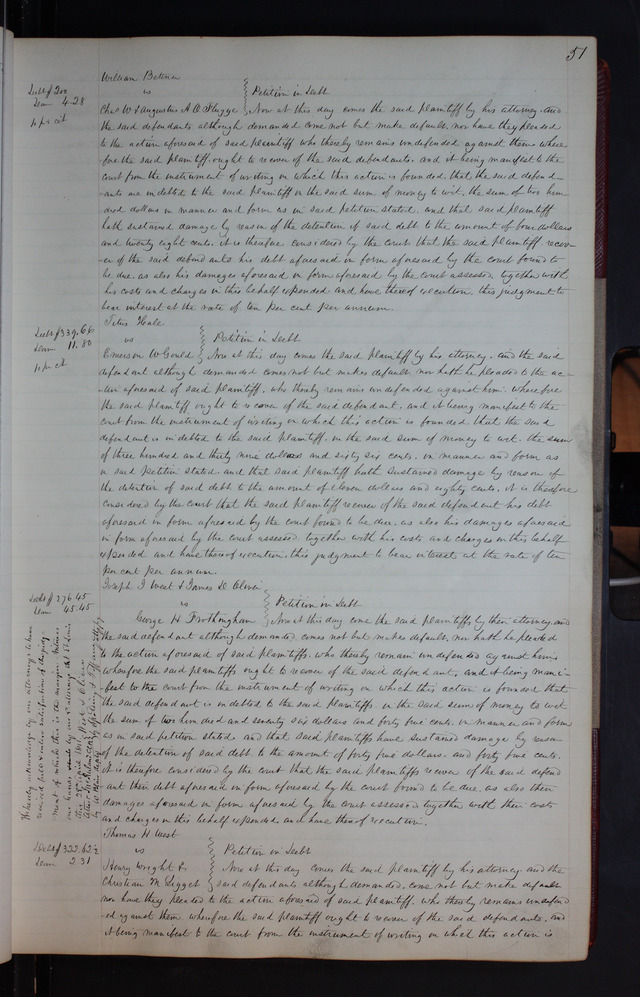 51
William Bettner
Debt $200 vs Petition in Debt
Dam 4.28 Chas W & Augustus A C Flugge Now at this day comes the said plaintiff by his attorney and
10 pr ct the said defendants although demanded come not but make default, nor have they pleaded
to the action aforesaid of said plaintiff who thereby remains undefended against them where
fore the said plaintiff ought to recover of the said defendants, and it being manifest to the
court from the instrument of writing on which this action is founded, that the said defend-
ants are indebted to the said plaintiff in the said sum of money to wit, the sum of two hun
dred dollars in manner and form as in said petition stated, and that said plaintiff
hath sustained damage by reason of the detention of said debt to the amount of four dollars
and twenty eight cents. it is therefore considered by the court that the said plaintiff recov-
er of the said defendants his debt aforesaid in form aforesaid by the court found to
be due, as also his damages aforesaid in form aforesaid by the court assessed, together with
his costs and charges in this behalf expended and have thereof execution, this judgment to
bear interest at the rate of ten per cent per annum.
Titus Hale
Debt $339.66 vs Petition in Debt
Dam 11.80 Emerson W Gould Now at this day comes the said plaintiff by his attorney, and the said
10 pr ct defendant although demanded comes not but makes default nor hath he pleaded to the ac-
tion aforesaid of said plaintiff, who thereby remains undefended against him, wherefore
the said plaintiff ought to recover of the said defendant, and it being manifest to the
court from the instrument of writing on which this action is founded that the said
defendant is indebted to the said plaintiff, in the said sum of money to wit, the sum
of three hundred and thirty nine dollars and sixty six cents, in manner and form as
in said petition stated and that said plaintiff hath sustained damage by reason of
the detention of said debt to the amount of eleven dollars and eighty cents, it is therefore
considered by the court that the said plaintiff recover of the said defendant his debt
aforesaid in form aforesaid by the court found to be due, as also his damages aforesaid
in form aforesaid by the court assessed, together with his costs and charges in this behalf
expended and have thereof execution, this judgment to bear interest at the rate of ten
per cent per annum.
Joseph J West & James D Oliver
Debt $276.45 vs Petition in Debt
Dam 45.45 George H Frothingham Now at this day come the said plaintiffs by their attorney, and
the said defendant although demanded, comes not but makes default, nor hath he pleaded
to the action aforesaid of said plaintiffs, who thereby remain undefended against him
wherefore the said plaintiffs ought to recover of the said defendant, and it being mani-
fest to the court from the instrument of writing on which this action is founded that
the said defendant is indebted to the said plaintiffs, in the said sum of money to wit
the sum of two hundred and seventy six dollars and forty five cents, in manner and form
as in said petition stated and that said plaintiffs have sustained damage by reason
of the detention of said debt to the amount of forty five dollars and forty five cents.
it is therefore considered by the court that the said plaintiffs recover of the said defend
ant their debt aforesaid in form aforesaid by the court found to be due, as also their
damages aforesaid in form aforesaid by the court assessed together with their costs
and charges in this behalf expended and have thereof execution.
Thomas H West
Debt $322.62½ vs Petition in Debt
Dam 2.31 Henry Wright & Now at this day comes the said plaintiff by his attorney and the
Christian M Ligget said defendants although demanded, come not but make default
nor have they pleaded to the action aforesaid of said plaintiff, who thereby remains undefend
ed against them wherefore the said plaintiff ought to recover of the said defendants, and
it being manifest to the court from the instrument of writing on which this action is